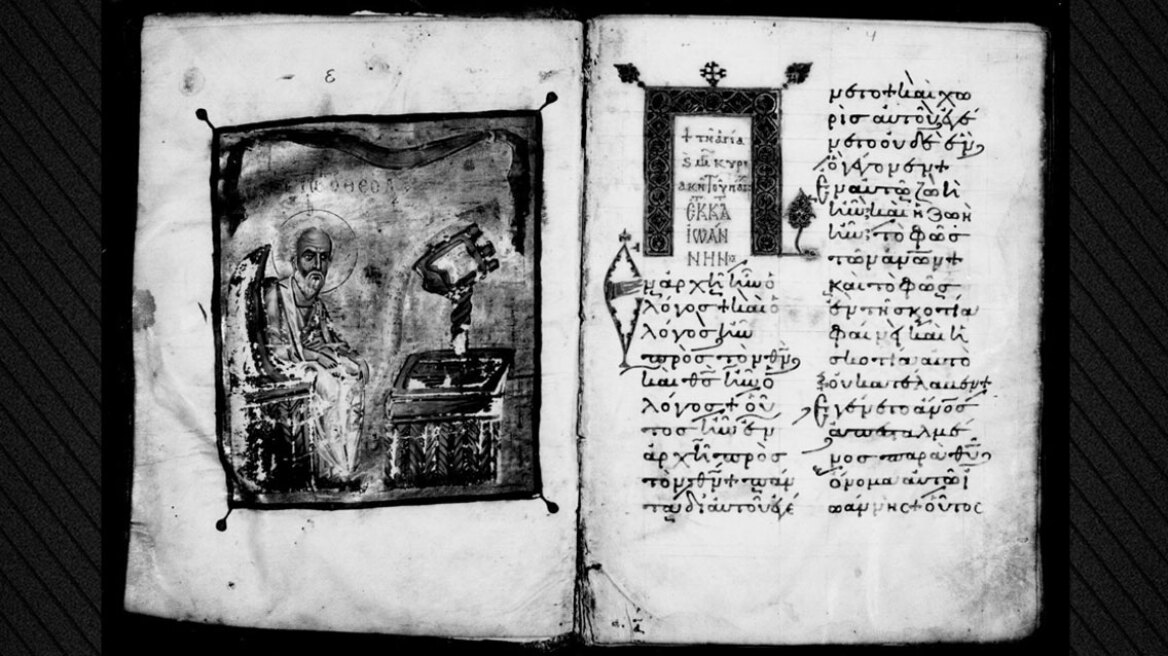 ε
ΘΕΟΛ
+ τῆ ἁγία
κυρι
ακῆ τοῦ πάσχ
ΕΚ Κ̅Α̅
ΙΩΑΝ
ΝΗΝ
Ἐν ἀρχῆ ἦν ὁ
λόγος + καὶ ὁ
λόγος ἦν
πρὸς τὸν θ̅ν̅
καὶ θ̅ς̅ ἦν ὁ
λόγος + οὗ
τος ἦν ἐν
ἀρχῆ πρὸς
τὸν θ̅ν̅ + πάν
τα δι αυτοῦ ἐγέ
νετο + καὶ χω
ρὶς αὐτοῦ ἐγέ
νετο οὐδὲ ἕν,
ὃ γέγονεν +
Ἐν αυτῶ ζωὴ
ἦν, καὶ ἡ ζωὴ
ἦν τὸ φῶς
τῶν ἀν̅ω̅ν +
καὶ τὸ φῶς
ἐν τῆ σκοτία
φαίνει καὶ ἡ
σκοτία αυτὸ
οὐ κατέλαβεν +
Ἐγένετο ἀν̅ο̅ς
ἀπεσταλμέ
νος παρὰ θ̅υ̅
ὄνομα αυτῶ ϊ
ωάννης + οὗτος